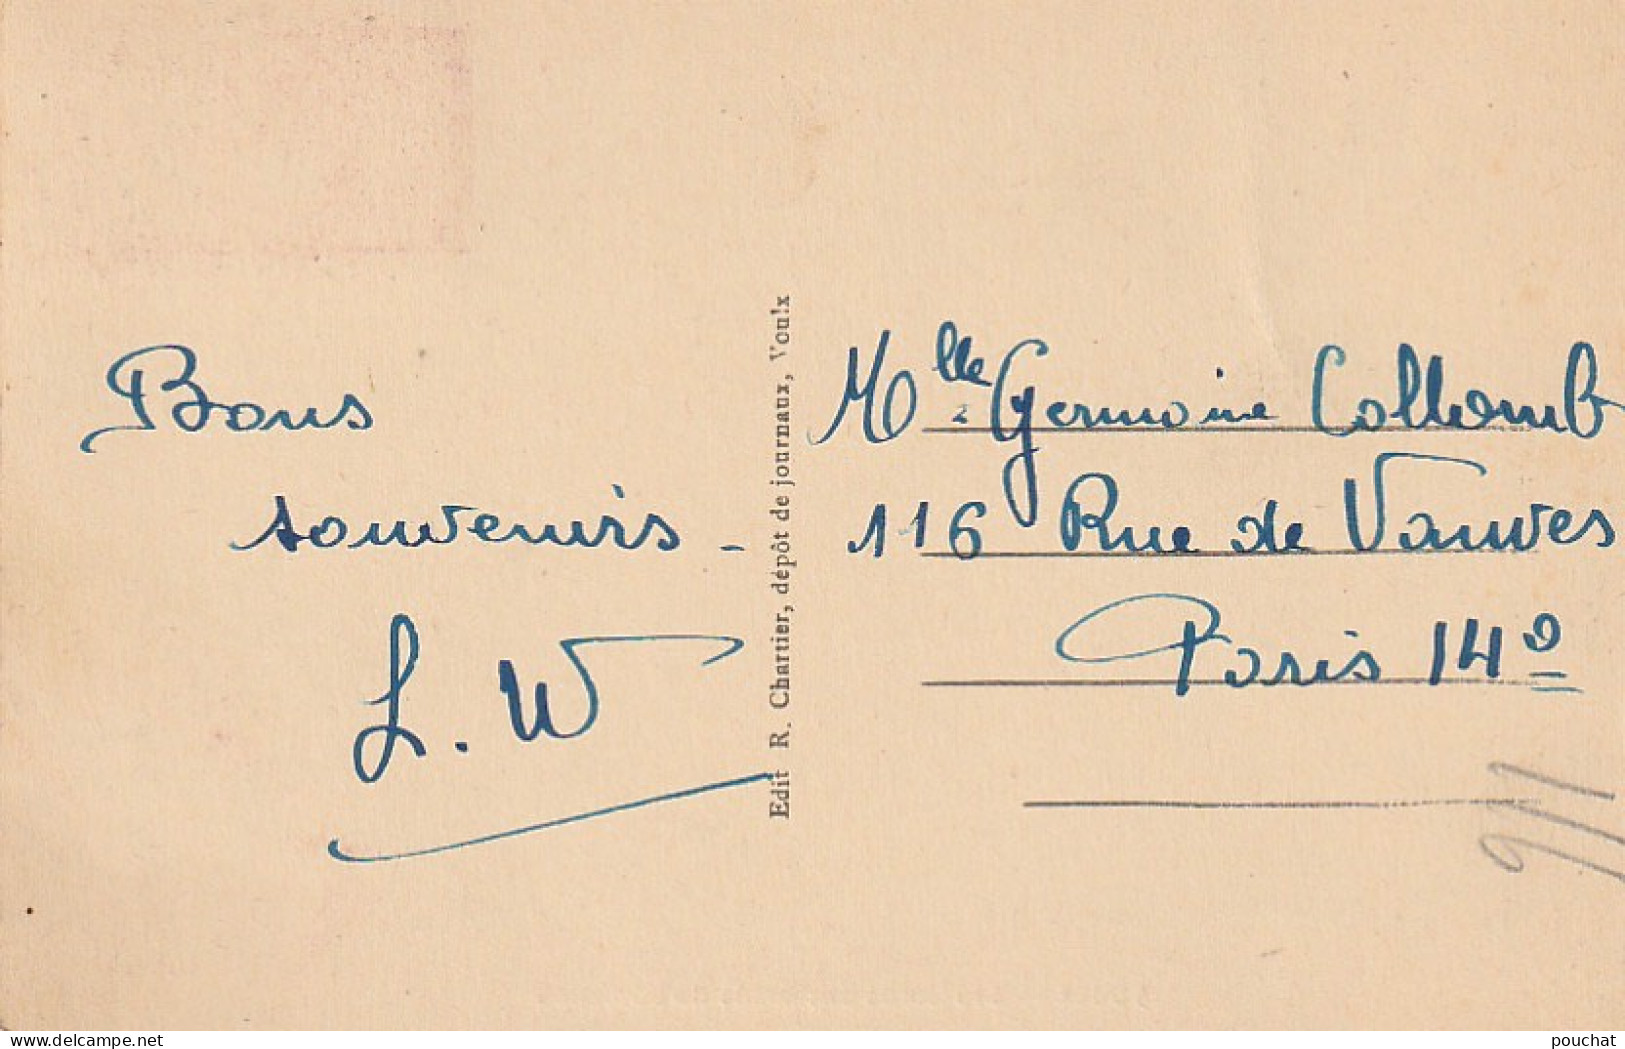 Bons
souvenirs -
L. W
Edit R. Chartier, dépôt de journaux, Voulx
Mlle Germaine Collomb
116 Rue de Vanves
Paris 14e
www.delcampe.net
pouchat